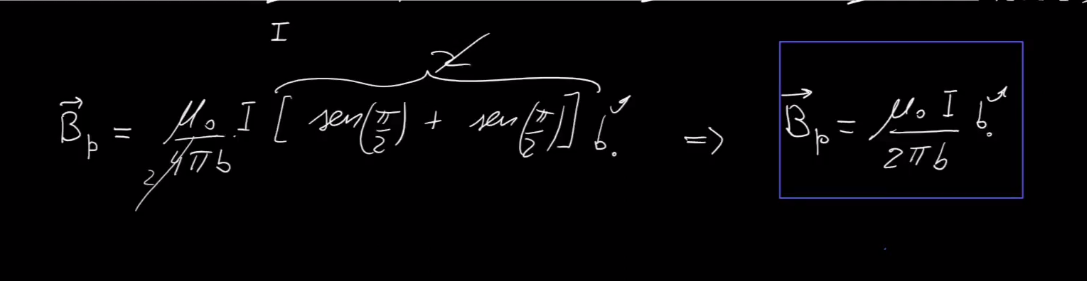 I
2
B⃗p = μ₀/4πb · I [ sen(π/2) + sen(π/2) ] b̂. ⇒ B⃗p = μ₀ I/2πb b̂.
2